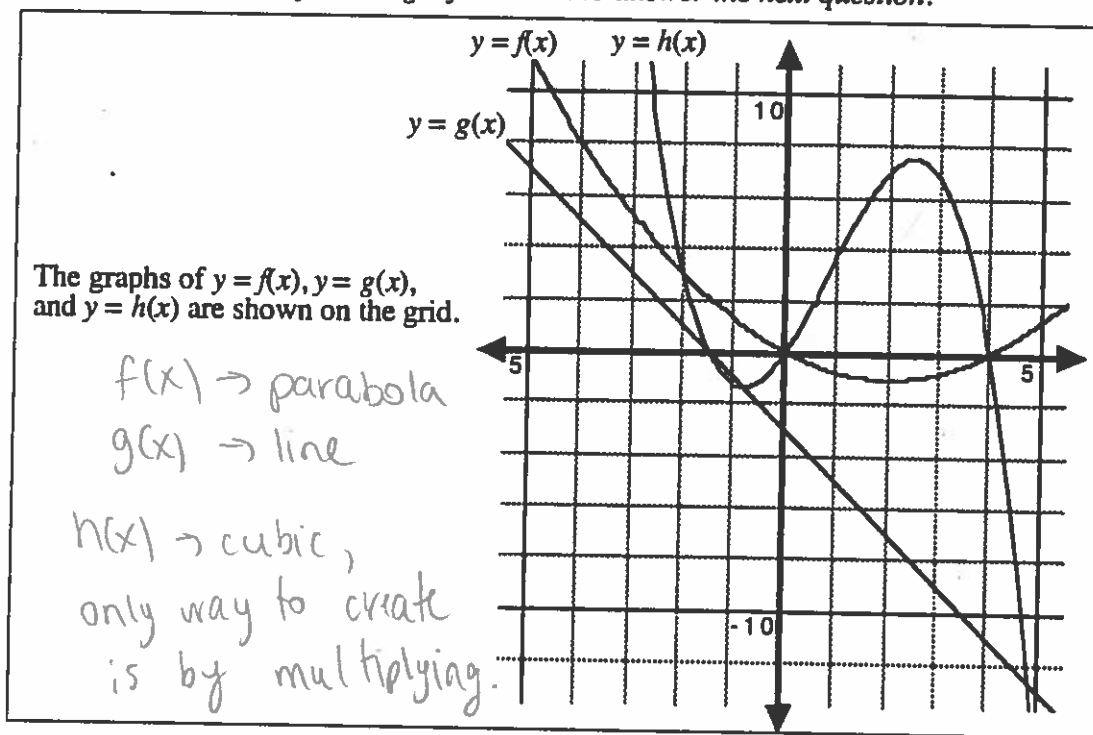 answer the next question.
y = f(x) y = h(x)
10
y = g(x)
The graphs of y = f(x), y = g(x),
and y = h(x) are shown on the grid.
5
5
f(x) → parabola
g(x) → line
h(x) → cubic,
only way to create
is by multiplying.
-10